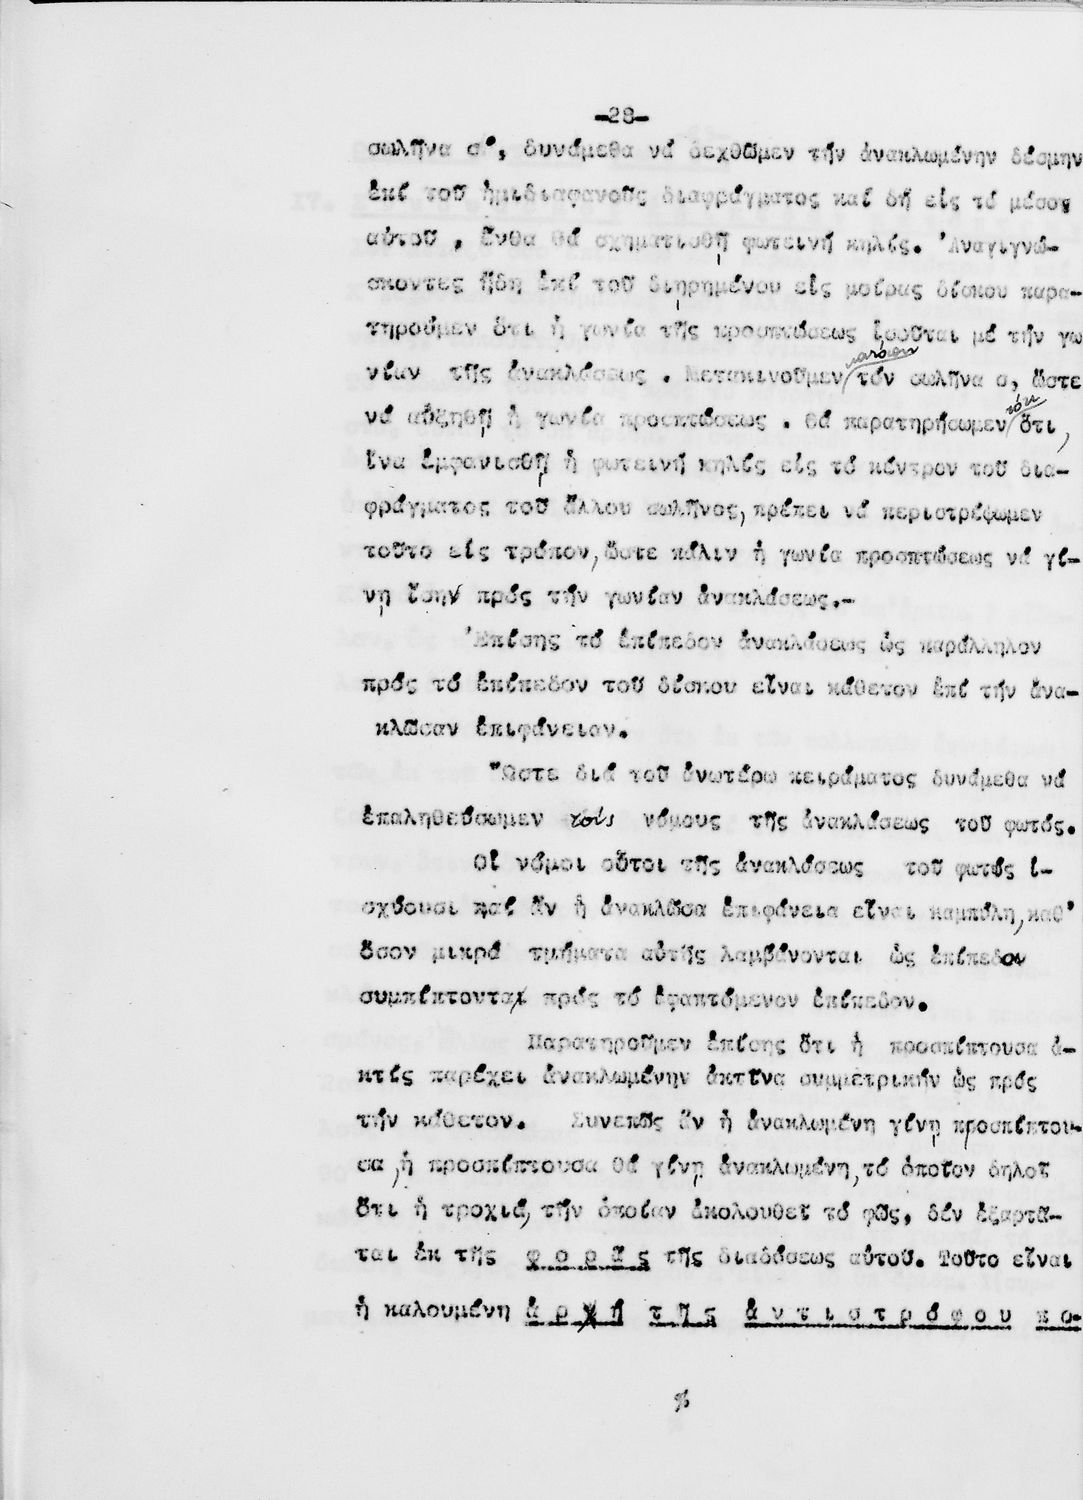 -28-
σωλῆνα σ', δυνάμεθα νά δεχθῶμεν τήν ἀνακλωμένην δέσμην
ἐπί τοῦ ἡμιδιαφανοῦς διαφράγματος καί δή εἰς τό μέσον
αὐτοῦ , ἔνθα θά σχηματισθῇ φωτεινή κηλίς. Ἀναγιγνώ-
σκοντες ἤδη ἐπί τοῦ διῃρημένου εἰς μοίρας δίσκου παρα-
τηροῦμεν ὅτι ἡ γωνία τῆς προσπτώσεως ἰσοῦται μέ τήν γω
νίαν τῆς ἀνακλάσεως . Μετακινοῦμεν κατόπιν τόν σωλῆνα σ, ὥστε
νά αὐξηθῇ ἡ γωνία προσπτώσεως . Θά παρατηρήσωμεν τότε ὅτι,
ἵνα ἐμφανισθῇ ἡ φωτεινή κηλίς εἰς τό κέντρον τοῦ δια-
φράγματος τοῦ ἄλλου σωλῆνος, πρέπει νά περιστρέψωμεν
τοῦτο εἰς τρόπον, ὥστε πάλιν ἡ γωνία προσπτώσεως νά γί-
νῃ ἴση πρός τήν γωνίαν ἀνακλάσεως.-
Ἐπίσης τό ἐπίπεδον ἀνακλάσεως ὡς παράλληλον
πρός τό ἐπίπεδον τοῦ δίσκου εἶναι κάθετον ἐπί τήν ἀνα-
κλῶσαν ἐπιφάνειαν.
Ὥστε διά τοῦ ἀνωτέρω πειράματος δυνάμεθα νά
ἐπαληθεύσωμεν τούς νόμους τῆς ἀνακλάσεως τοῦ φωτός.
Οἱ νόμοι οὗτοι τῆς ἀνακλάσεως τοῦ φωτός ἰ-
σχύουσι καί ἄν ἡ ἀνακλῶσα ἐπιφάνεια εἶναι καμπύλη, καθ'
ὅσον μικρά τμήματα αὐτῆς λαμβάνονται ὡς ἐπίπεδα
συμπίπτοντα πρός τό ἐφαπτόμενον ἐπίπεδον.
Παρατηροῦμεν ἐπίσης ὅτι ἡ προσπίπτουσα ἀ-
κτίς παρέχει ἀνακλωμένην ἀκτῖνα συμμετρικήν ὡς πρός
τήν κάθετον. Συνεπῶς ἄν ἡ ἀνακλωμένη γίνῃ προσπίπτου-
σα, ἡ προσπίπτουσα θά γίνῃ ἀνακλωμένη, τό ὁποῖον δηλοῖ
ὅτι ἡ τροχιά, τήν ὁποίαν ἀκολουθεῖ τό φῶς, δέν ἐξαρτᾶ-
ται ἐκ τῆς φ ο ρ ᾶ ς τῆς διαδόσεως αὐτοῦ. Τοῦτο εἶναι
ἡ καλουμένη ἀ ρ χ ή τ ῆ ς ἀ ν τ ι σ τ ρ ό φ ο υ π ο-
%